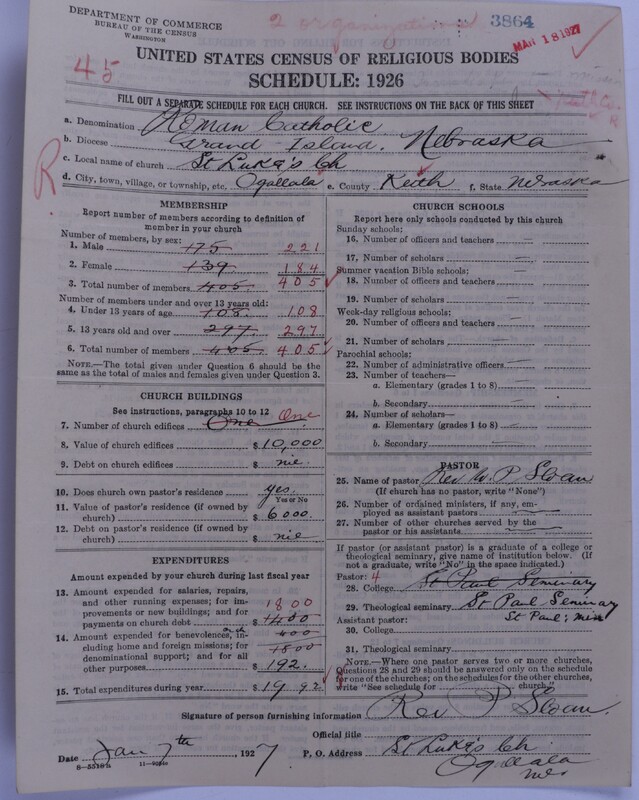 DEPARTMENT OF COMMERCE
BUREAU OF THE CENSUS
WASHINGTON
2 organizations
3864
MAR 18 1927
45
UNITED STATES CENSUS OF RELIGIOUS BODIES
SCHEDULE: 1926
FILL OUT A SEPARATE SCHEDULE FOR EACH CHURCH. SEE INSTRUCTIONS ON THE BACK OF THIS SHEET
R
a. Denomination Roman Catholic
b. Diocese Grand Island, Nebraska
c. Local name of church St Luke's Ch
d. City, town, village, or township, etc. Ogallala e. County Keith f. State Nebraska
MEMBERSHIP
Report number of members according to definition of
member in your church
Number of members, by sex:
1. Male 175 221
2. Female 139 184
3. Total number of members 405 405
Number of members under and over 13 years old:
4. Under 13 years of age 108 108
5. 13 years old and over 297 297
6. Total number of members 405 405
NOTE.—The total given under Question 6 should be
the same as the total of males and females given under Question 3.
CHURCH BUILDINGS
See instructions, paragraphs 10 to 12
7. Number of church edifices One One
8. Value of church edifices $ 10,000
9. Debt on church edifices $ nil
10. Does church own pastor's residence yes
Yes or No
11. Value of pastor's residence (if owned by
church) $ 6000.
12. Debt on pastor's residence (if owned by
church) $ nil
EXPENDITURES
Amount expended by your church during last fiscal year
13. Amount expended for salaries, repairs,
and other running expenses; for im-
provements or new buildings; and for
payments on church debt $ 1400 1800
14. Amount expended for benevolences, in-
cluding home and foreign missions; for
denominational support; and for all
other purposes 400 1800 $ 192.
15. Total expenditures during year $ 1992
CHURCH SCHOOLS
Report here only schools conducted by this church
Sunday schools:
16. Number of officers and teachers
17. Number of scholars
Summer vacation Bible schools:
18. Number of officers and teachers
19. Number of scholars
Week-day religious schools:
20. Number of officers and teachers
21. Number of scholars
Parochial schools:
22. Number of administrative officers
23. Number of teachers—
a. Elementary (grades 1 to 8)
b. Secondary
24. Number of scholars—
a. Elementary (grades 1 to 8)
b. Secondary
PASTOR
25. Name of pastor Rev W. P Sloan
(If church has no pastor, write "None")
26. Number of ordained ministers, if any, em-
ployed as assistant pastors
27. Number of other churches served by the
pastor or his assistants
If pastor (or assistant pastor) is a graduate of a college or
theological seminary, give name of institution below. (If
not a graduate, write "No" in the space indicated.)
Pastor: 4
28. College St Paul Seminary
29. Theological seminary St Paul Seminary
St Paul; Minn
Assistant pastor:
30. College
31. Theological seminary
NOTE.—Where one pastor serves two or more churches,
Questions 28 and 29 should be answered only on the schedule
for one of the churches; on the schedules for the other churches,
write "See schedule for church."
Signature of person furnishing information Rev P Sloan.
Official title
Date Jan 7th 1927 P. O. Address St Luke's Ch
Ogallala
Neb
8—5519a 11—9294c